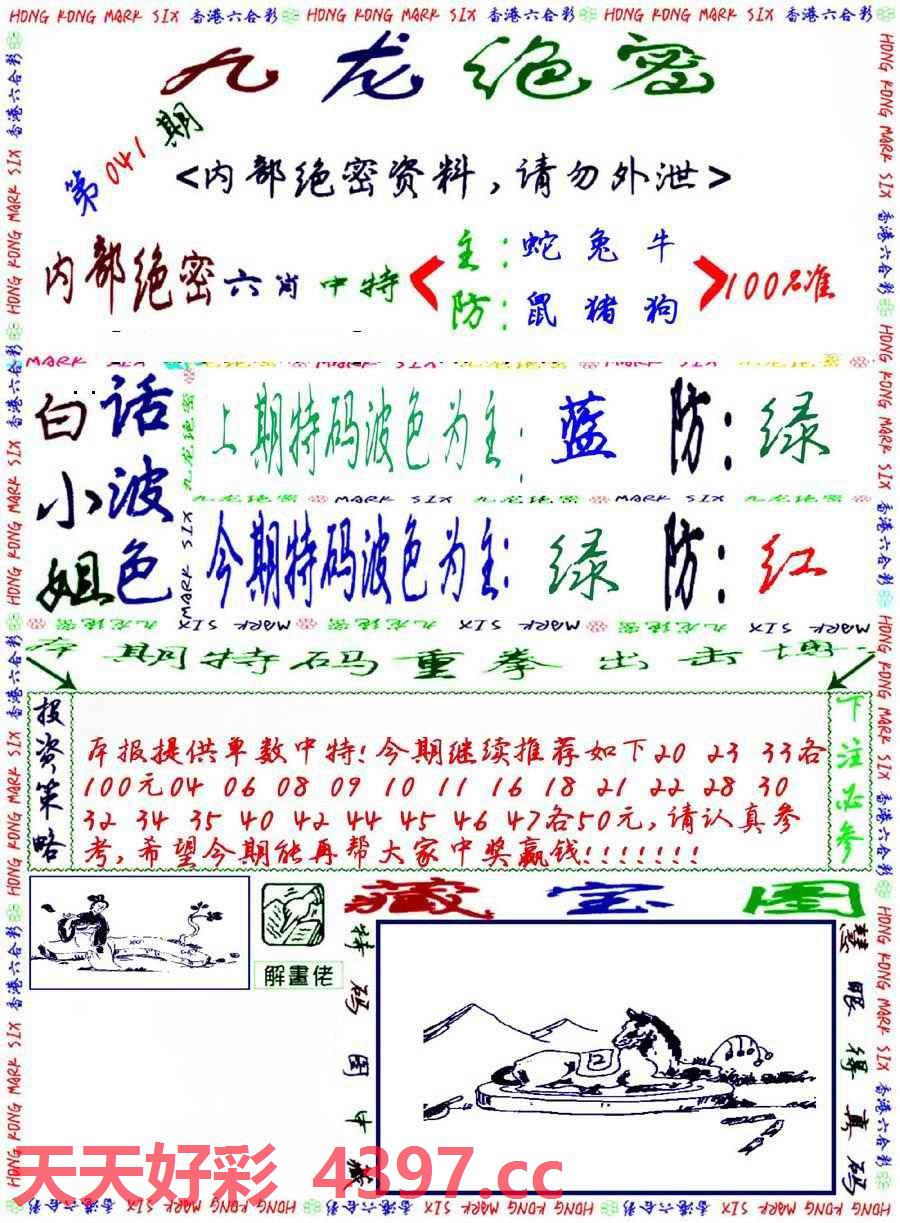 HONG KONG MARK SIX 香港六合彩 HONG KONG MARK SIX 香港六合彩 HONG KONG MARK SIX 香港六合彩
九龙绝密
第041期
<内部绝密资料,请勿外泄>
内部绝密六肖中特
主:蛇兔牛
防:鼠猪狗
100%准
白话
小波
姐色
上期特码波色为主:蓝 防:绿
九龙绝密 MARK SIX 九龙绝密 MARK SIX 九龙绝密
今期特码波色为主:绿 防:红
本期特码重拳出击博
投资策略
本报提供单数中特!今期继续推荐如下20 23 33各
100元04 06 08 09 10 11 16 18 21 22 28 30
32 34 35 40 42 44 45 46 47各50元,请认真参
考,希望今期能再帮大家中奖赢钱!!!!!!!
下注必参
藏宝图
解畫佬
特码图中藏
慧眼得真码
天天好彩 4397.cc